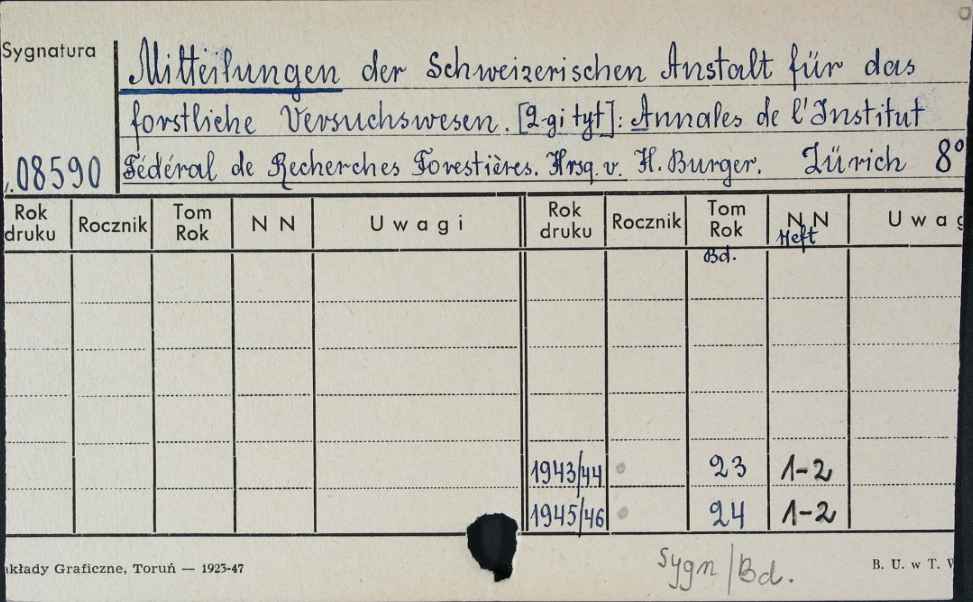 Sygnatura
Mitteilungen der Schweizerischen Anstalt für das
forstliche Versuchswesen. [2-gi tyt]: Annales de l'Institut
08590 Fédéral de Recherches Forestières. Hrsg. v. H. Burger. Zürich 8°
Rok druku Rocznik Tom Rok N N Uwagi Rok druku Rocznik Tom Rok N N Uwag
Bd. Heft
1943/44 23 1-2
1945/46 24 1-2
Sygn/Bd.
kłady Graficzne, Toruń — 1925-47 B. U. w T.